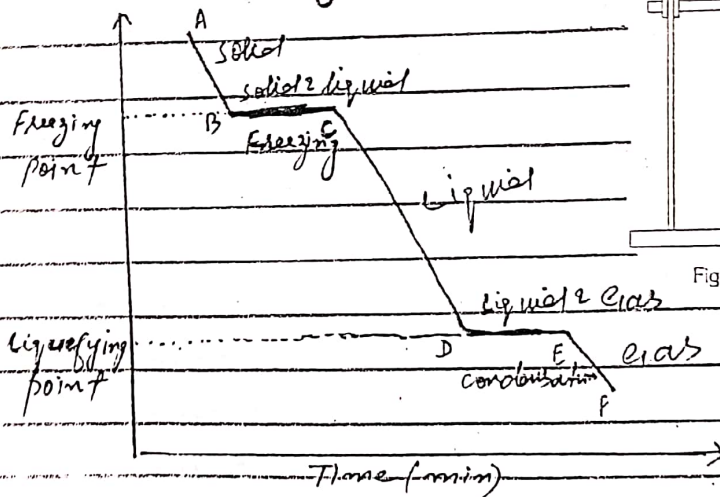 A
Solid
Solid & liquid
Freezing
point
B
C
Freezing
Liquid
Fig
Liquid & Gas
Liquefying
point
D
E
Gas
F
Time (min)